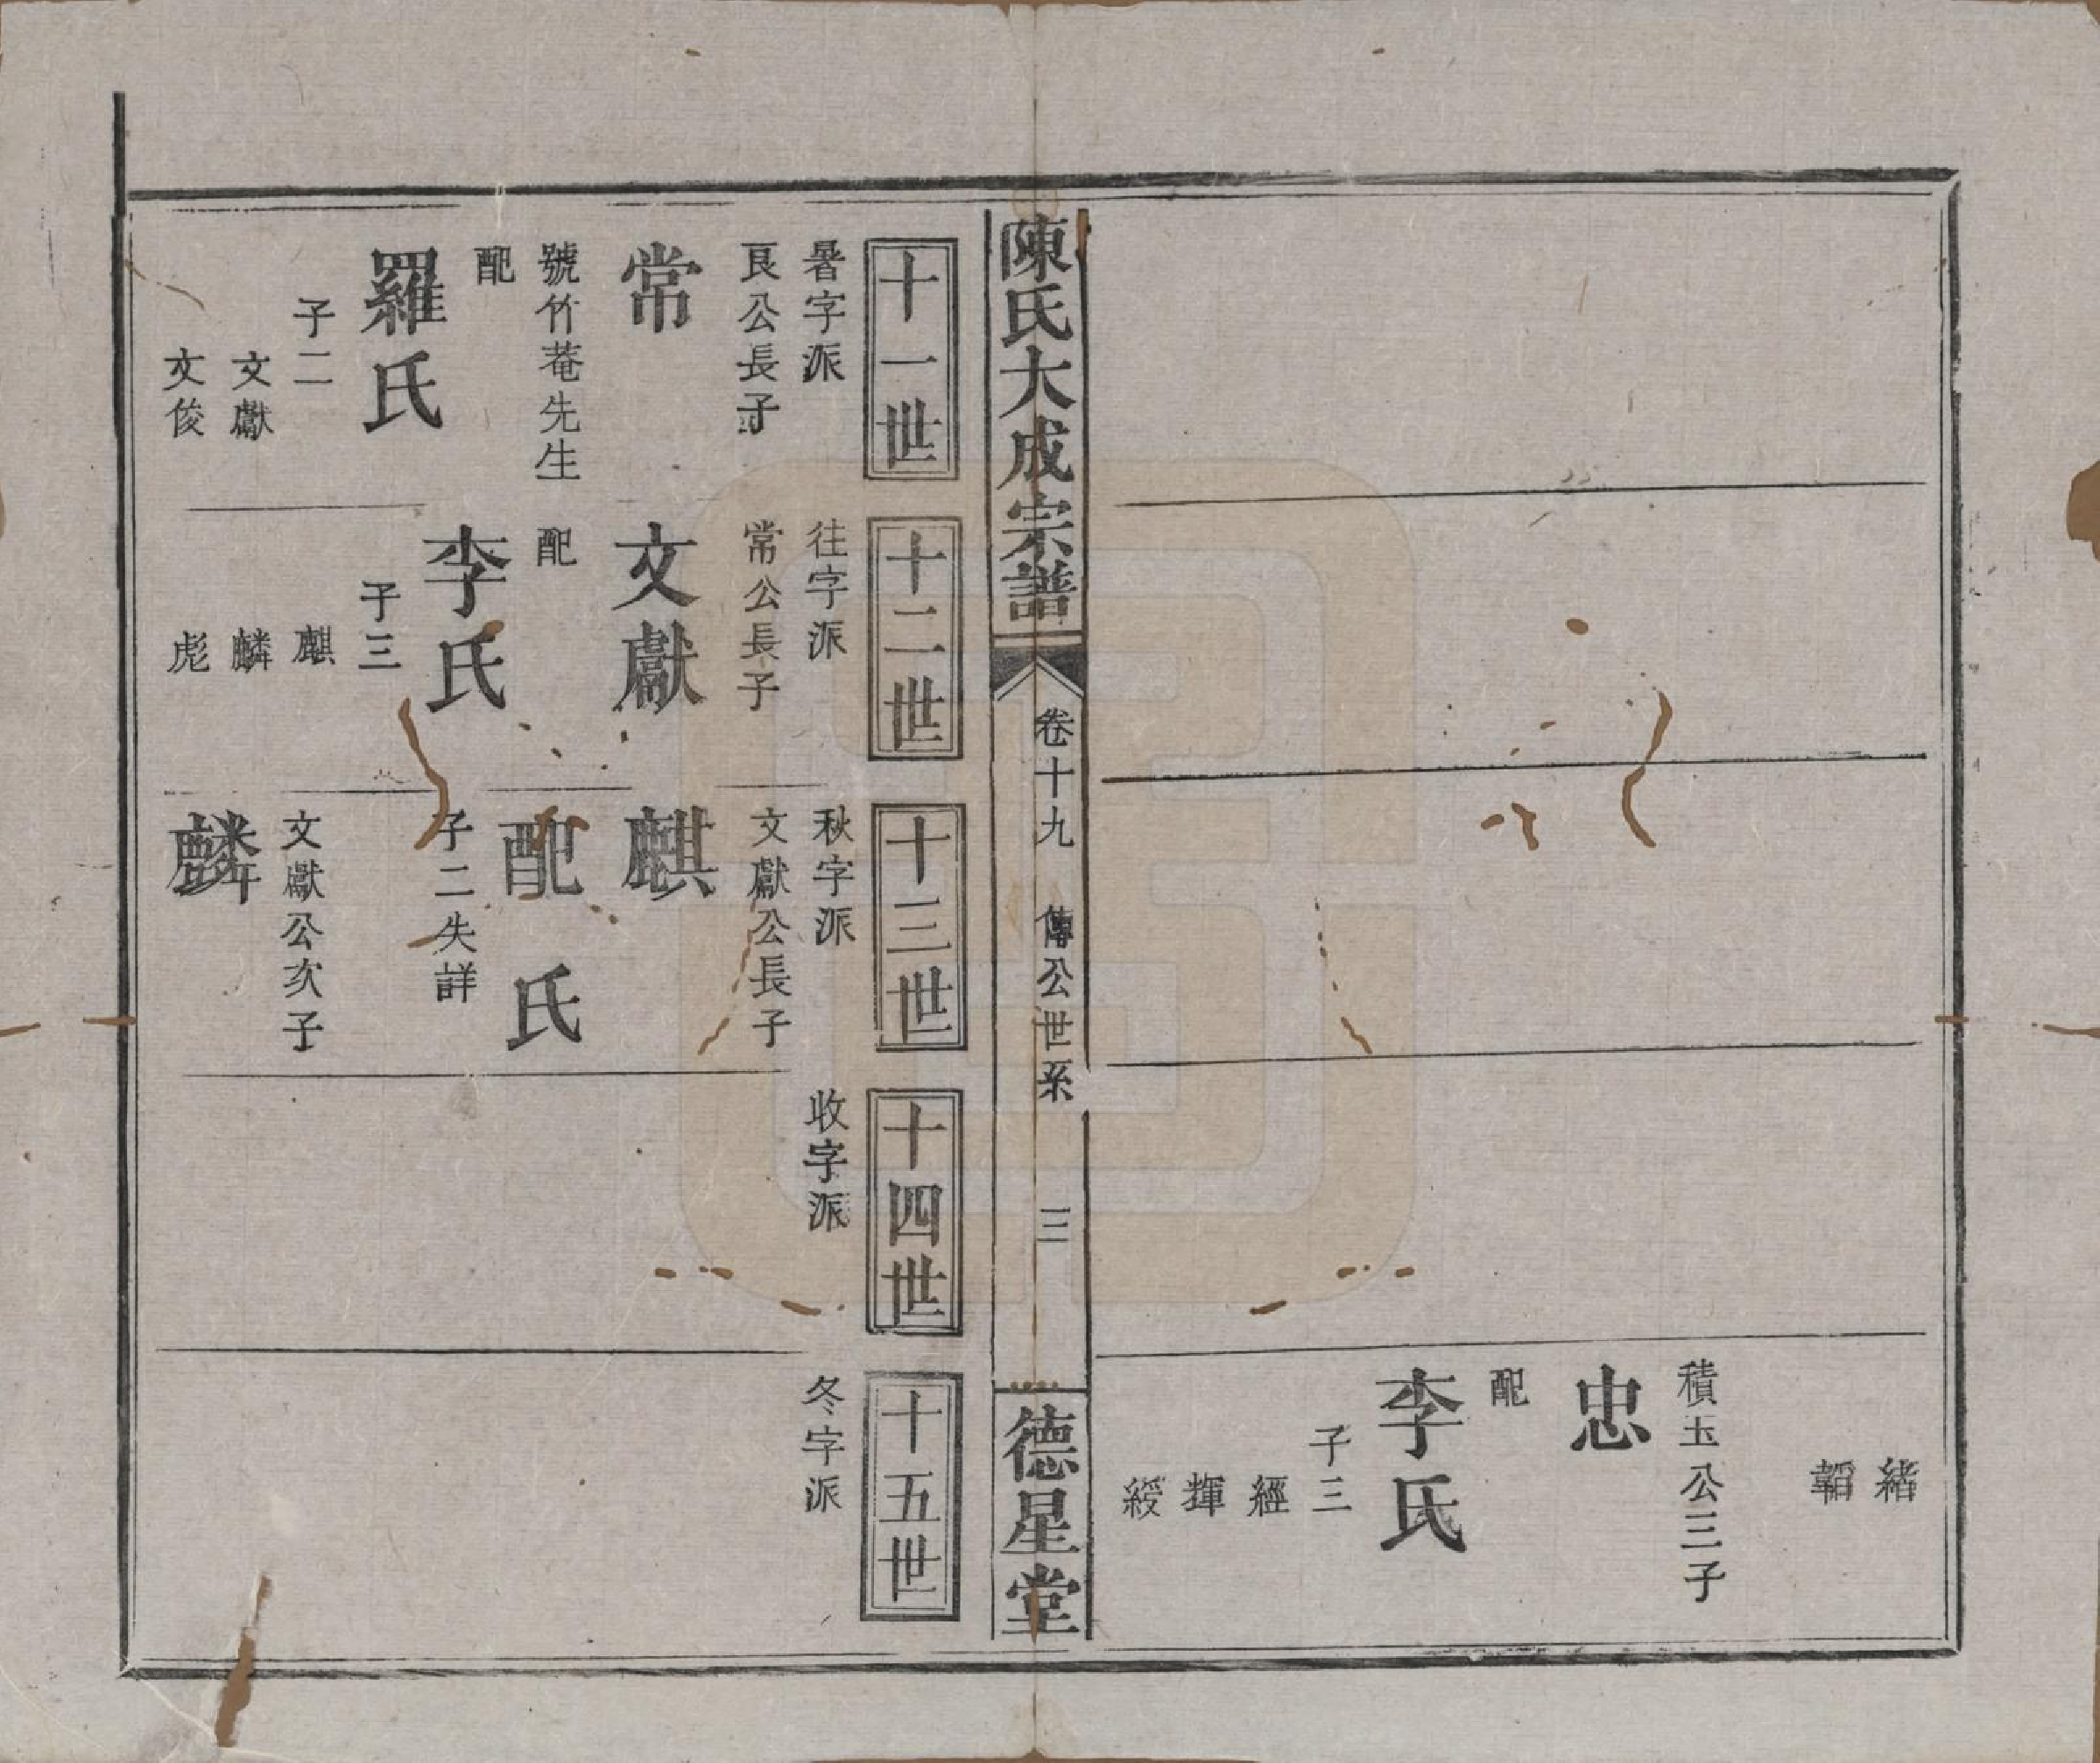 緒
韜
積玉公三子
忠
配
李氏
子三
經
輝
綬
陳氏大成宗譜
卷十九
傳公世系
三
德星堂
十一世
暑字派
艮公長子
常
號竹菴先生
配
羅氏
子二
文獻
文俊
十二世
往字派
常公長子
文獻
配
李氏
子三
麒
麟
彪
十三世
秋字派
文獻公長子
麒
配氏
子二失詳
文獻公次子
麟
十四世
收字派
十五世
冬字派